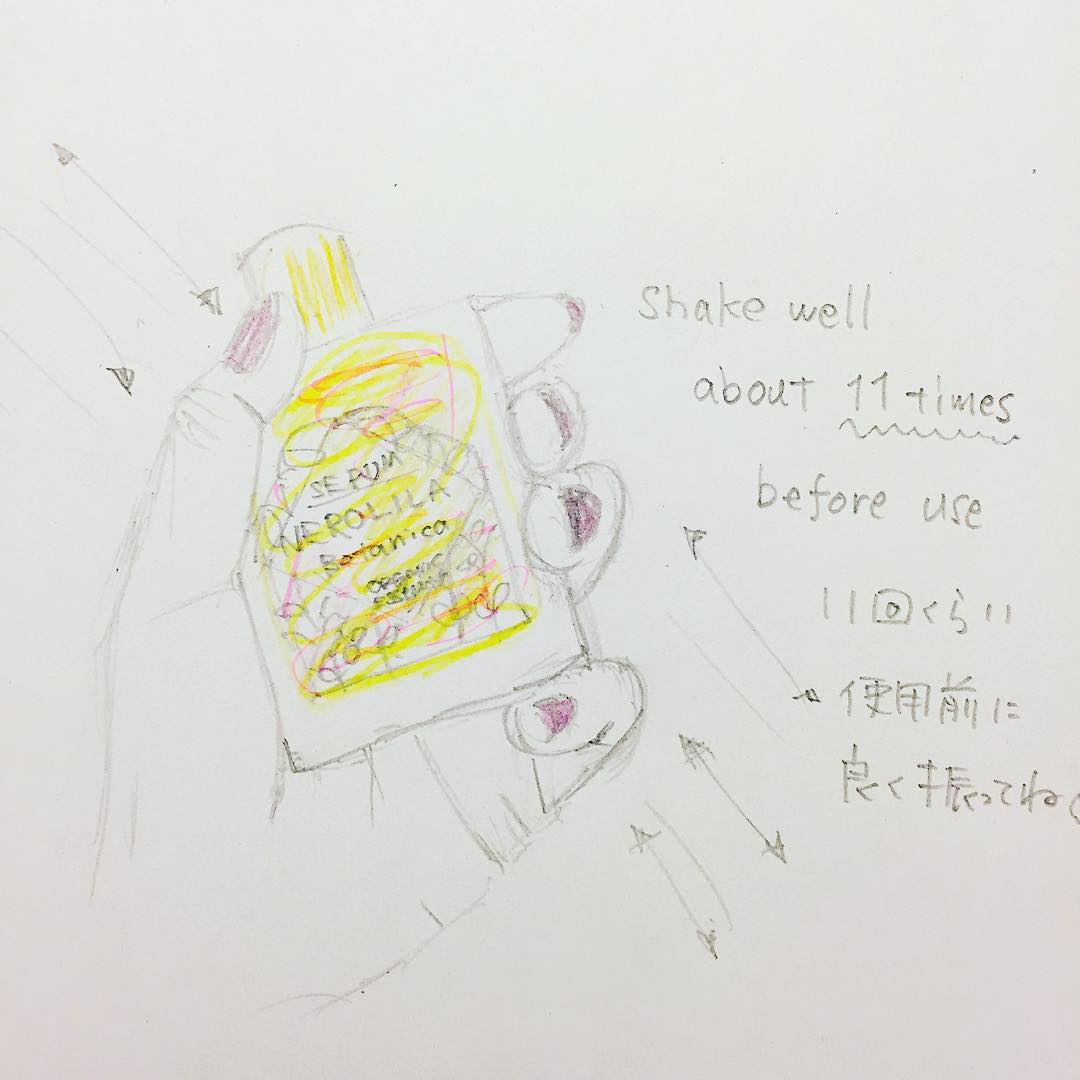 SERUM
NEROLILA
Botanica
ORGANIC
Shake well
about 11 times
before use
11回くらい
使用前に
良く振ってね